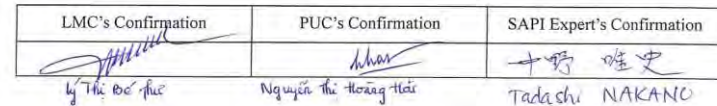 LMC's Confirmation PUC's Confirmation SAPI Expert's Confirmation
中野 唯史
Lý Thị Bé Nguyễn Thị Hoàng Hải Tadashi NAKANO